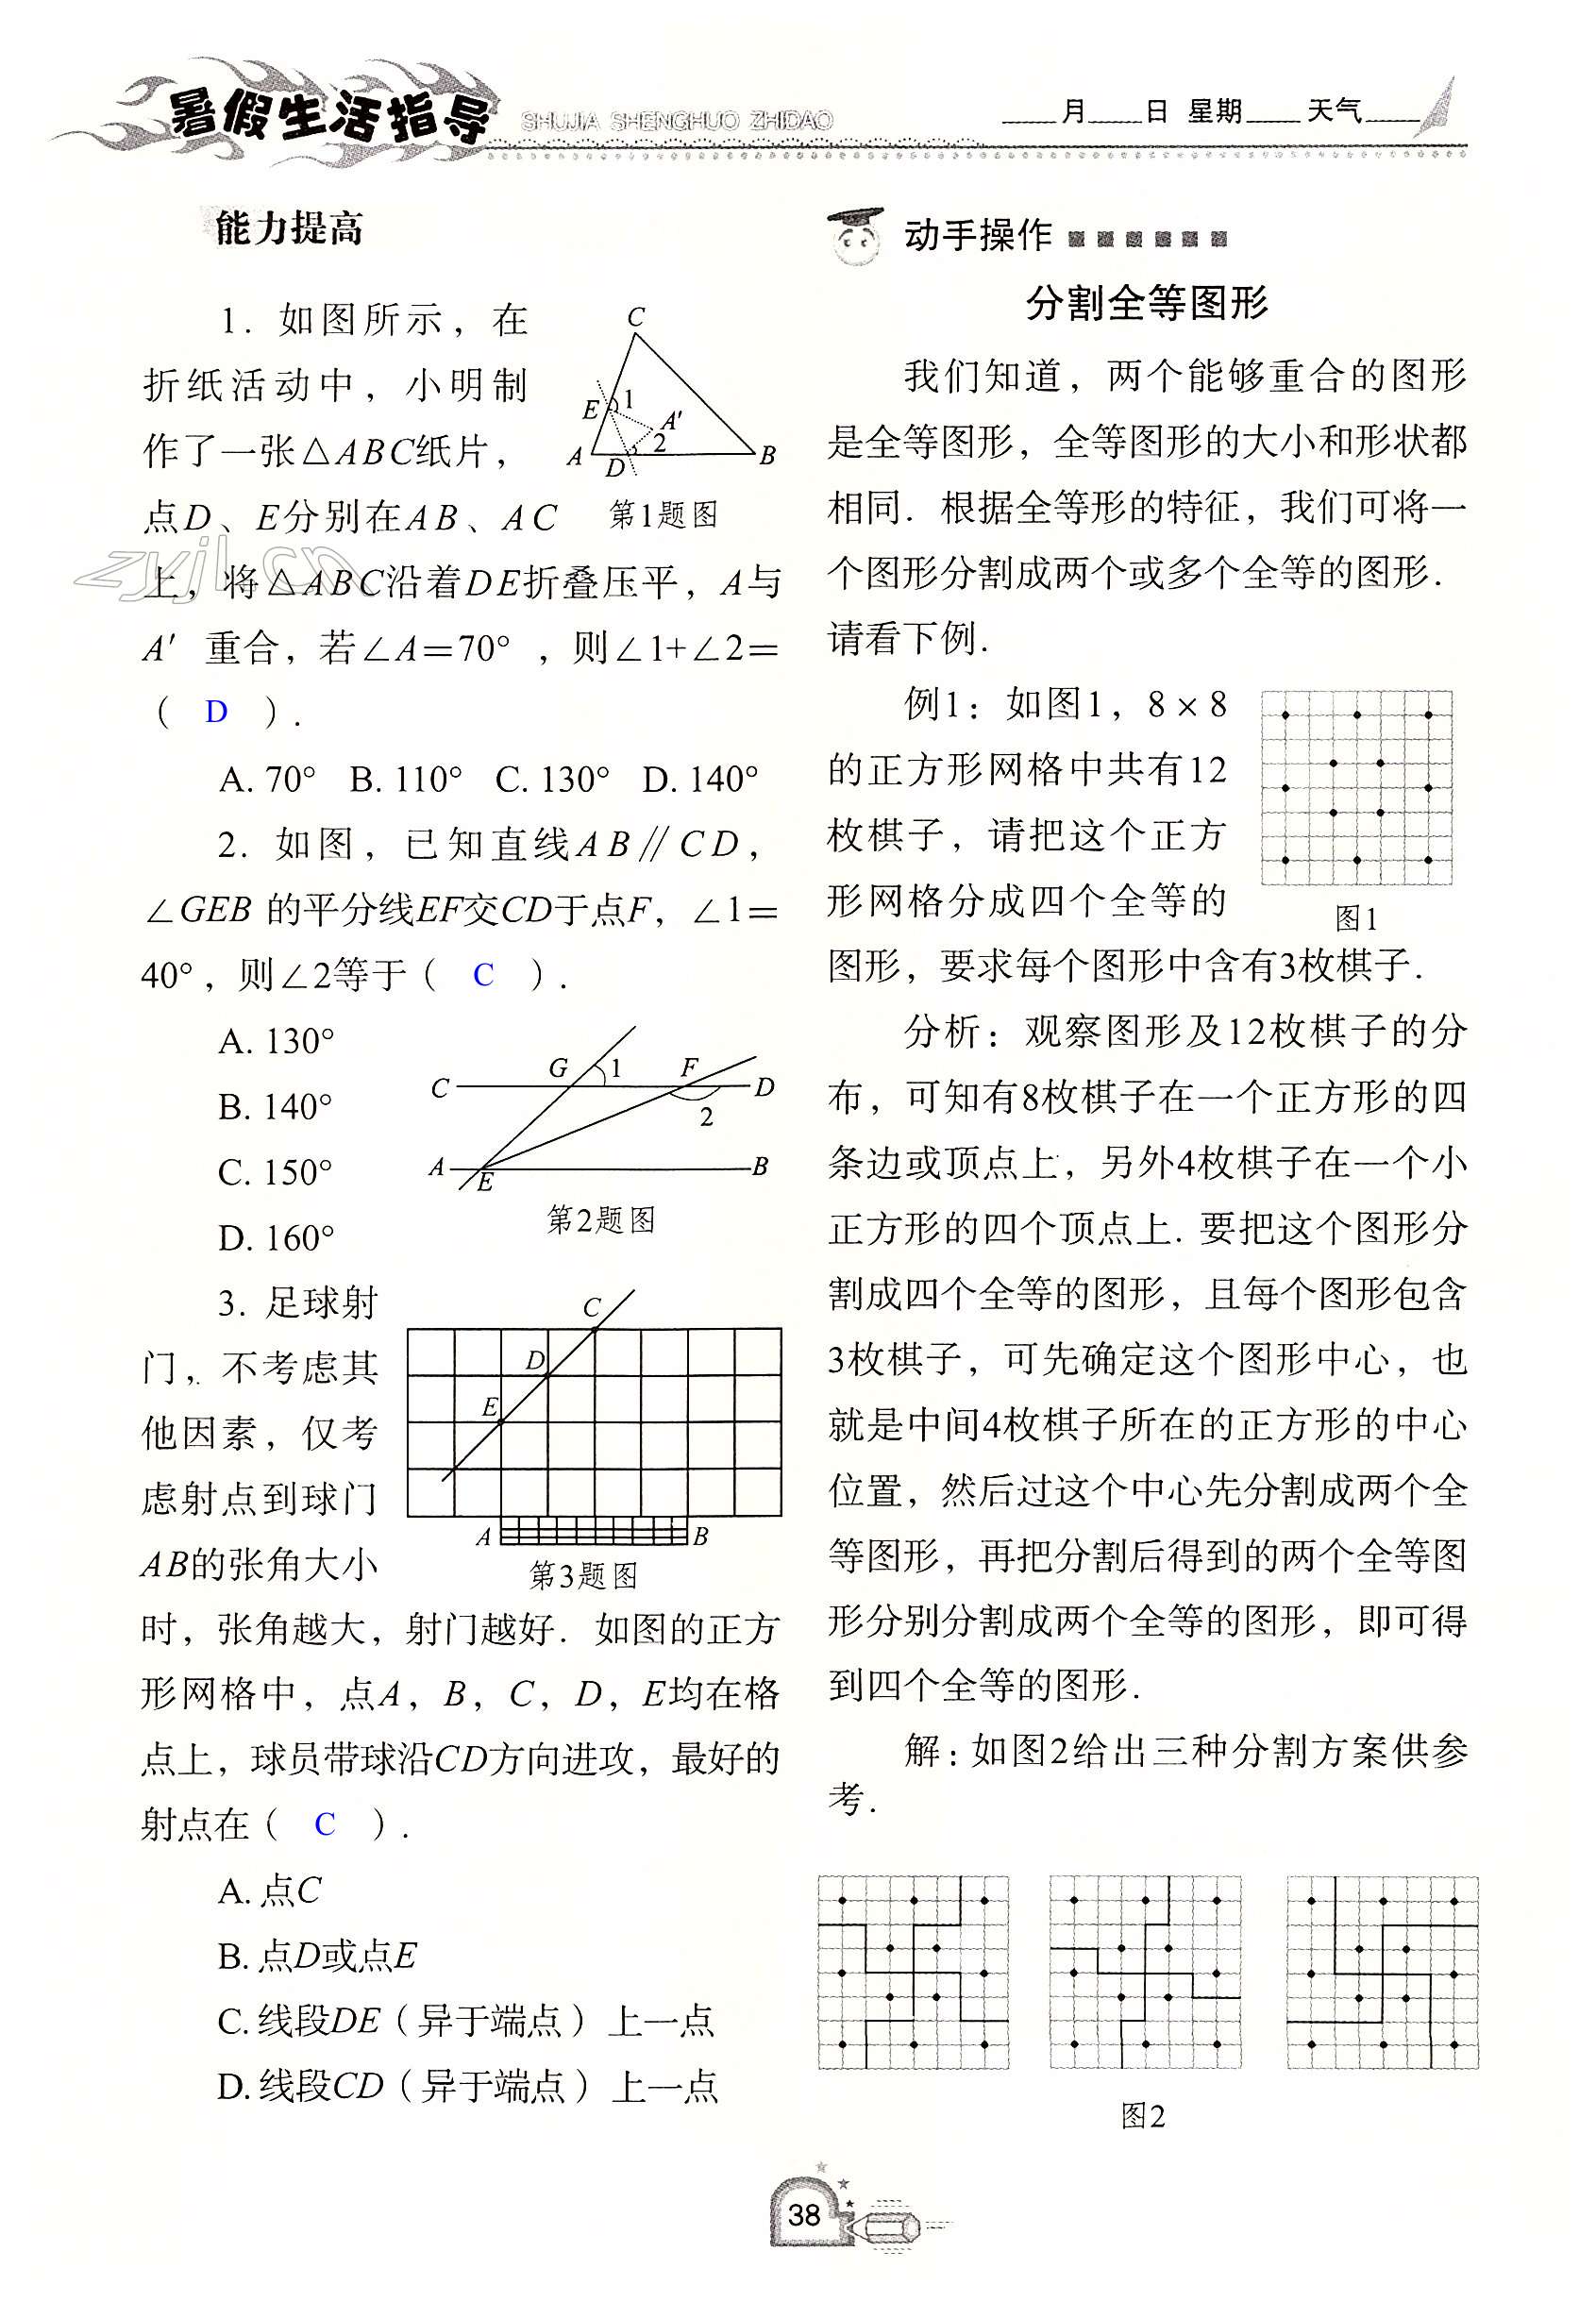 暑假生活指导 SHUJIA SHENGHUO ZHIDAO ____月____日 星期____天气____
能力提高
1. 如图所示，在
折纸活动中，小明制
作了一张△ABC纸片，
点D、E分别在AB、AC
上，将△ABC沿着DE折叠压平，A与
A′ 重合，若∠A=70°，则∠1+∠2=
（ D ）.
A. 70° B. 110° C. 130° D. 140°
C
E
1
A′
2
A
D
B
第1题图
2. 如图，已知直线AB∥CD，
∠GEB 的平分线EF交CD于点F，∠1=
40°，则∠2等于（ C ）.
A. 130°
B. 140°
C. 150°
D. 160°
C
G
1
F
D
2
A
E
B
第2题图
3. 足球射
门，不考虑其
他因素，仅考
虑射点到球门
AB的张角大小
时，张角越大，射门越好．如图的正方
形网格中，点A，B，C，D，E均在格
点上，球员带球沿CD方向进攻，最好的
射点在（ C ）.
A. 点C
B. 点D或点E
C. 线段DE（异于端点）上一点
D. 线段CD（异于端点）上一点
C
D
E
A
B
第3题图
动手操作
分割全等图形
我们知道，两个能够重合的图形
是全等图形，全等图形的大小和形状都
相同．根据全等形的特征，我们可将一
个图形分割成两个或多个全等的图形．
请看下例．
例1：如图1，8×8
的正方形网格中共有12
枚棋子，请把这个正方
形网格分成四个全等的
图形，要求每个图形中含有3枚棋子．
图1
分析：观察图形及12枚棋子的分
布，可知有8枚棋子在一个正方形的四
条边或顶点上，另外4枚棋子在一个小
正方形的四个顶点上．要把这个图形分
割成四个全等的图形，且每个图形包含
3枚棋子，可先确定这个图形中心，也
就是中间4枚棋子所在的正方形的中心
位置，然后过这个中心先分割成两个全
等图形，再把分割后得到的两个全等图
形分别分割成两个全等的图形，即可得
到四个全等的图形．
解：如图2给出三种分割方案供参
考．
图2
38
zyjl.cn